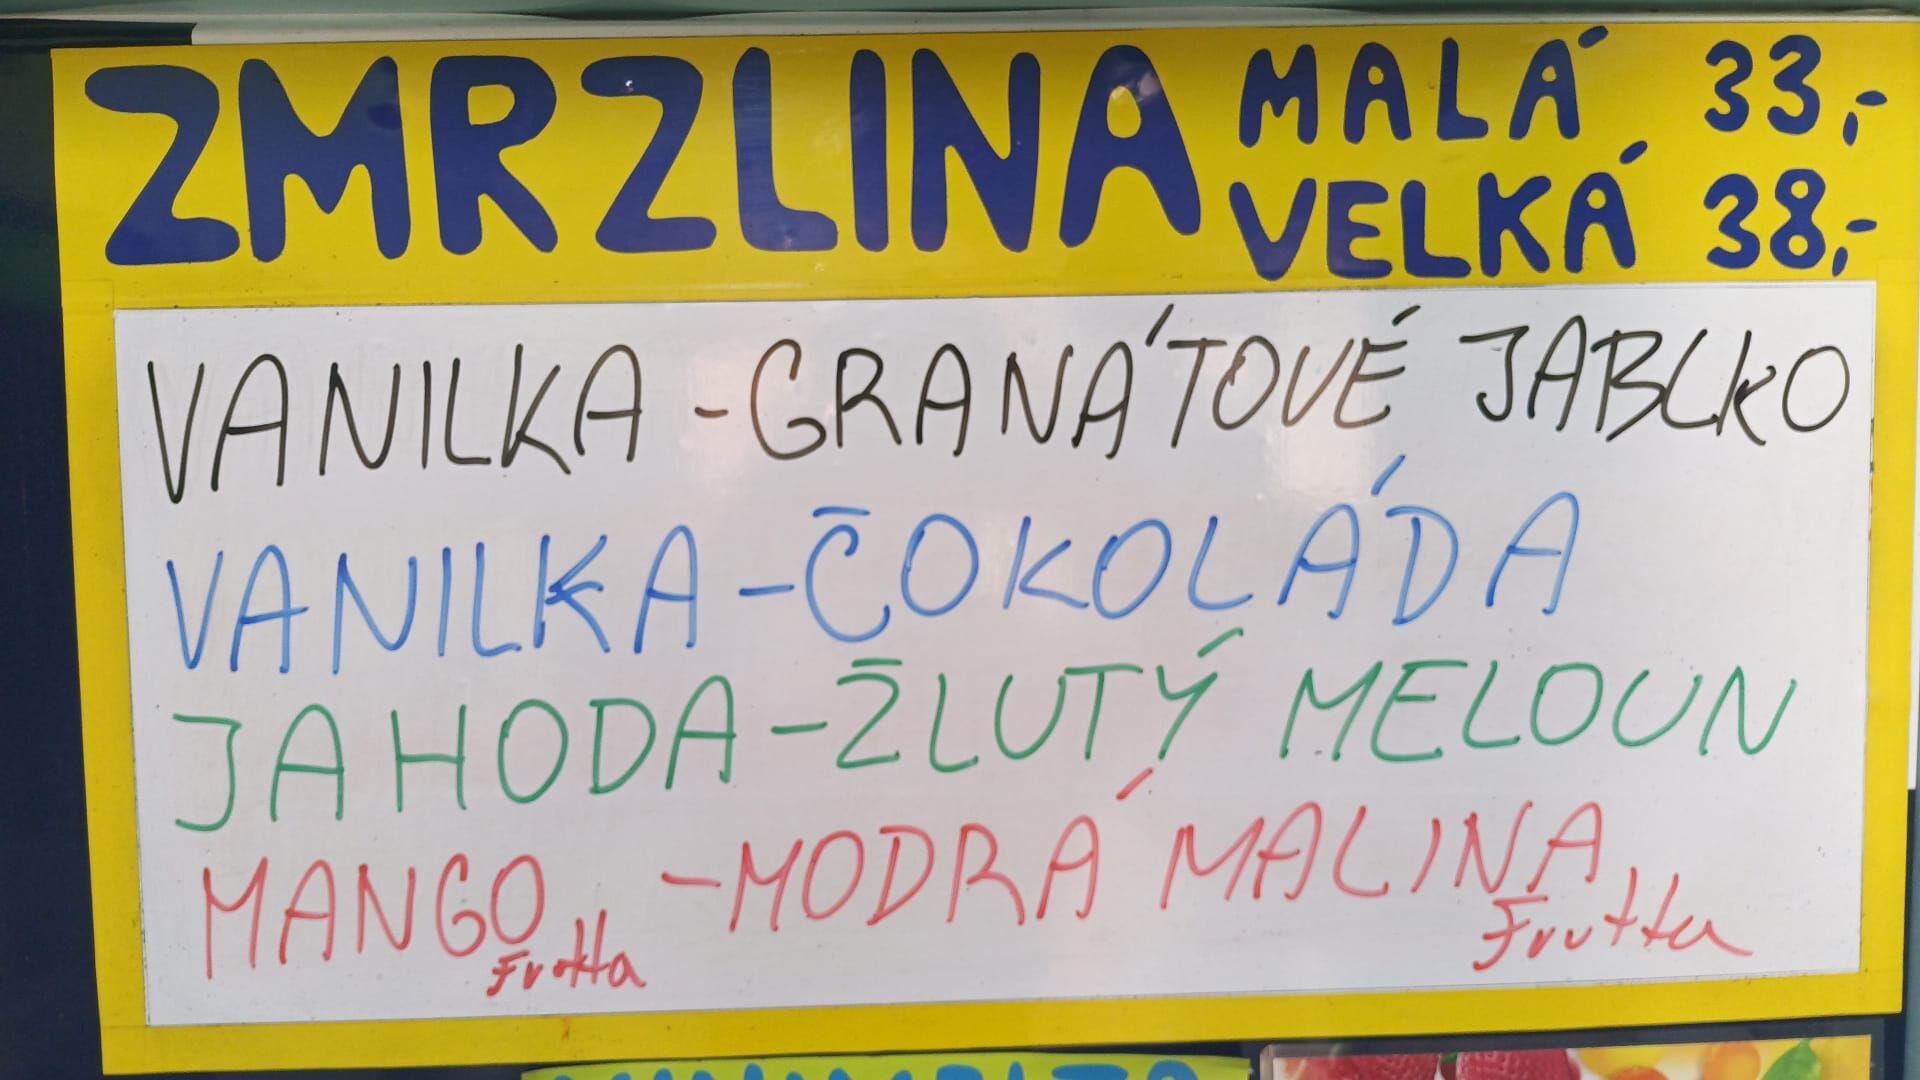 ZMRZLINA MALÁ 33,-
VELKÁ 38,-
VANILKA - GRANÁTOVÉ JABLKO
VANILKA - ČOKOLÁDA
JAHODA - ŽLUTÝ MELOUN
MANGO Frutta - MODRÁ MALINA Frutta